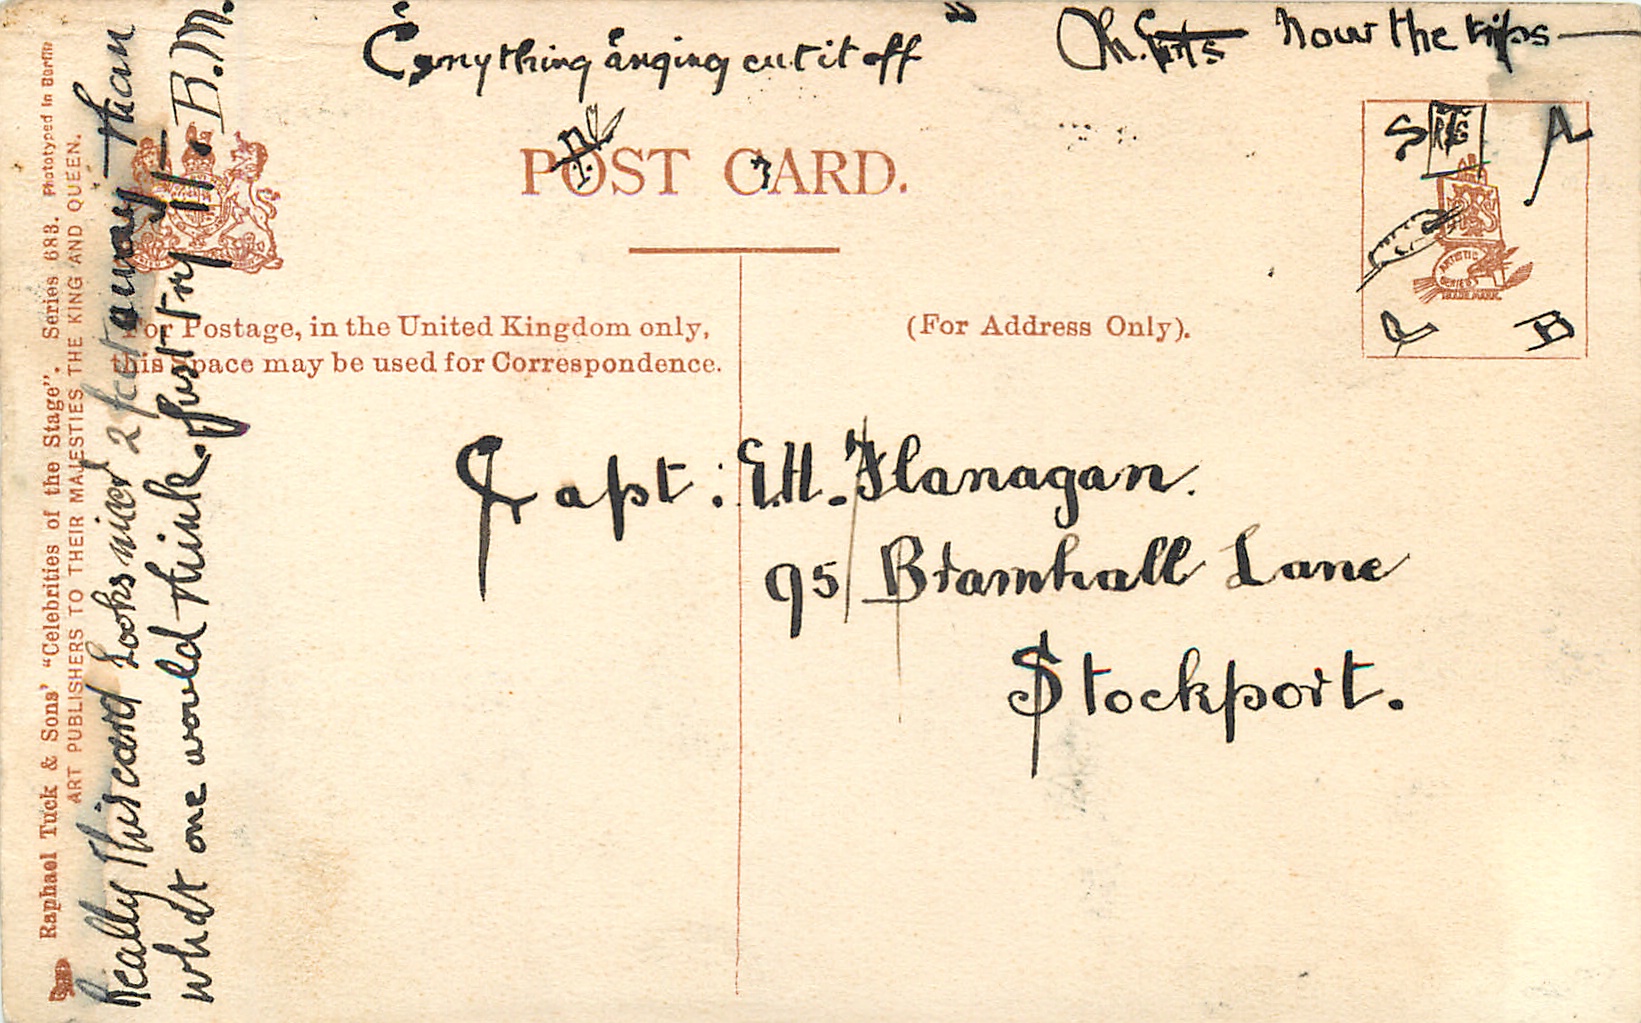 Enything anging cut it off
Oh. Now the rips
POST CARD.
For Postage, in the United Kingdom only,
this Space may be used for Correspondence.
(For Address Only).
S
A
B
ARTISTIC
SERIES
TRADE MARK
Capt: E.H. Flanagan.
95 Bramhall Lane
Stockport.
Raphael Tuck & Sons' "Celebrities of the Stage". Series 683. Phototyped in Berlin
ART PUBLISHERS TO THEIR MAJESTIES THE KING AND QUEEN.
Really this card looks nicer 2 feet away than
what one would think. Just try it. B.M.